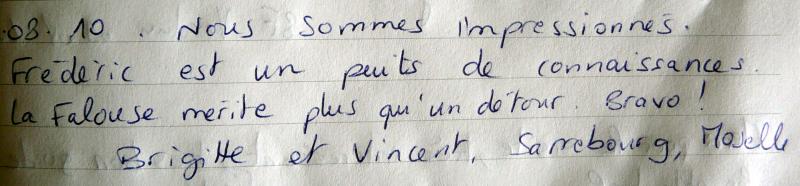 .03.10. Nous sommes impressionnés.
Frédéric est un peuits de connaissances.
la Falouse mérite plus qu'un détour. Bravo !
Brigitte et Vincent, Sarrebourg, Moselle